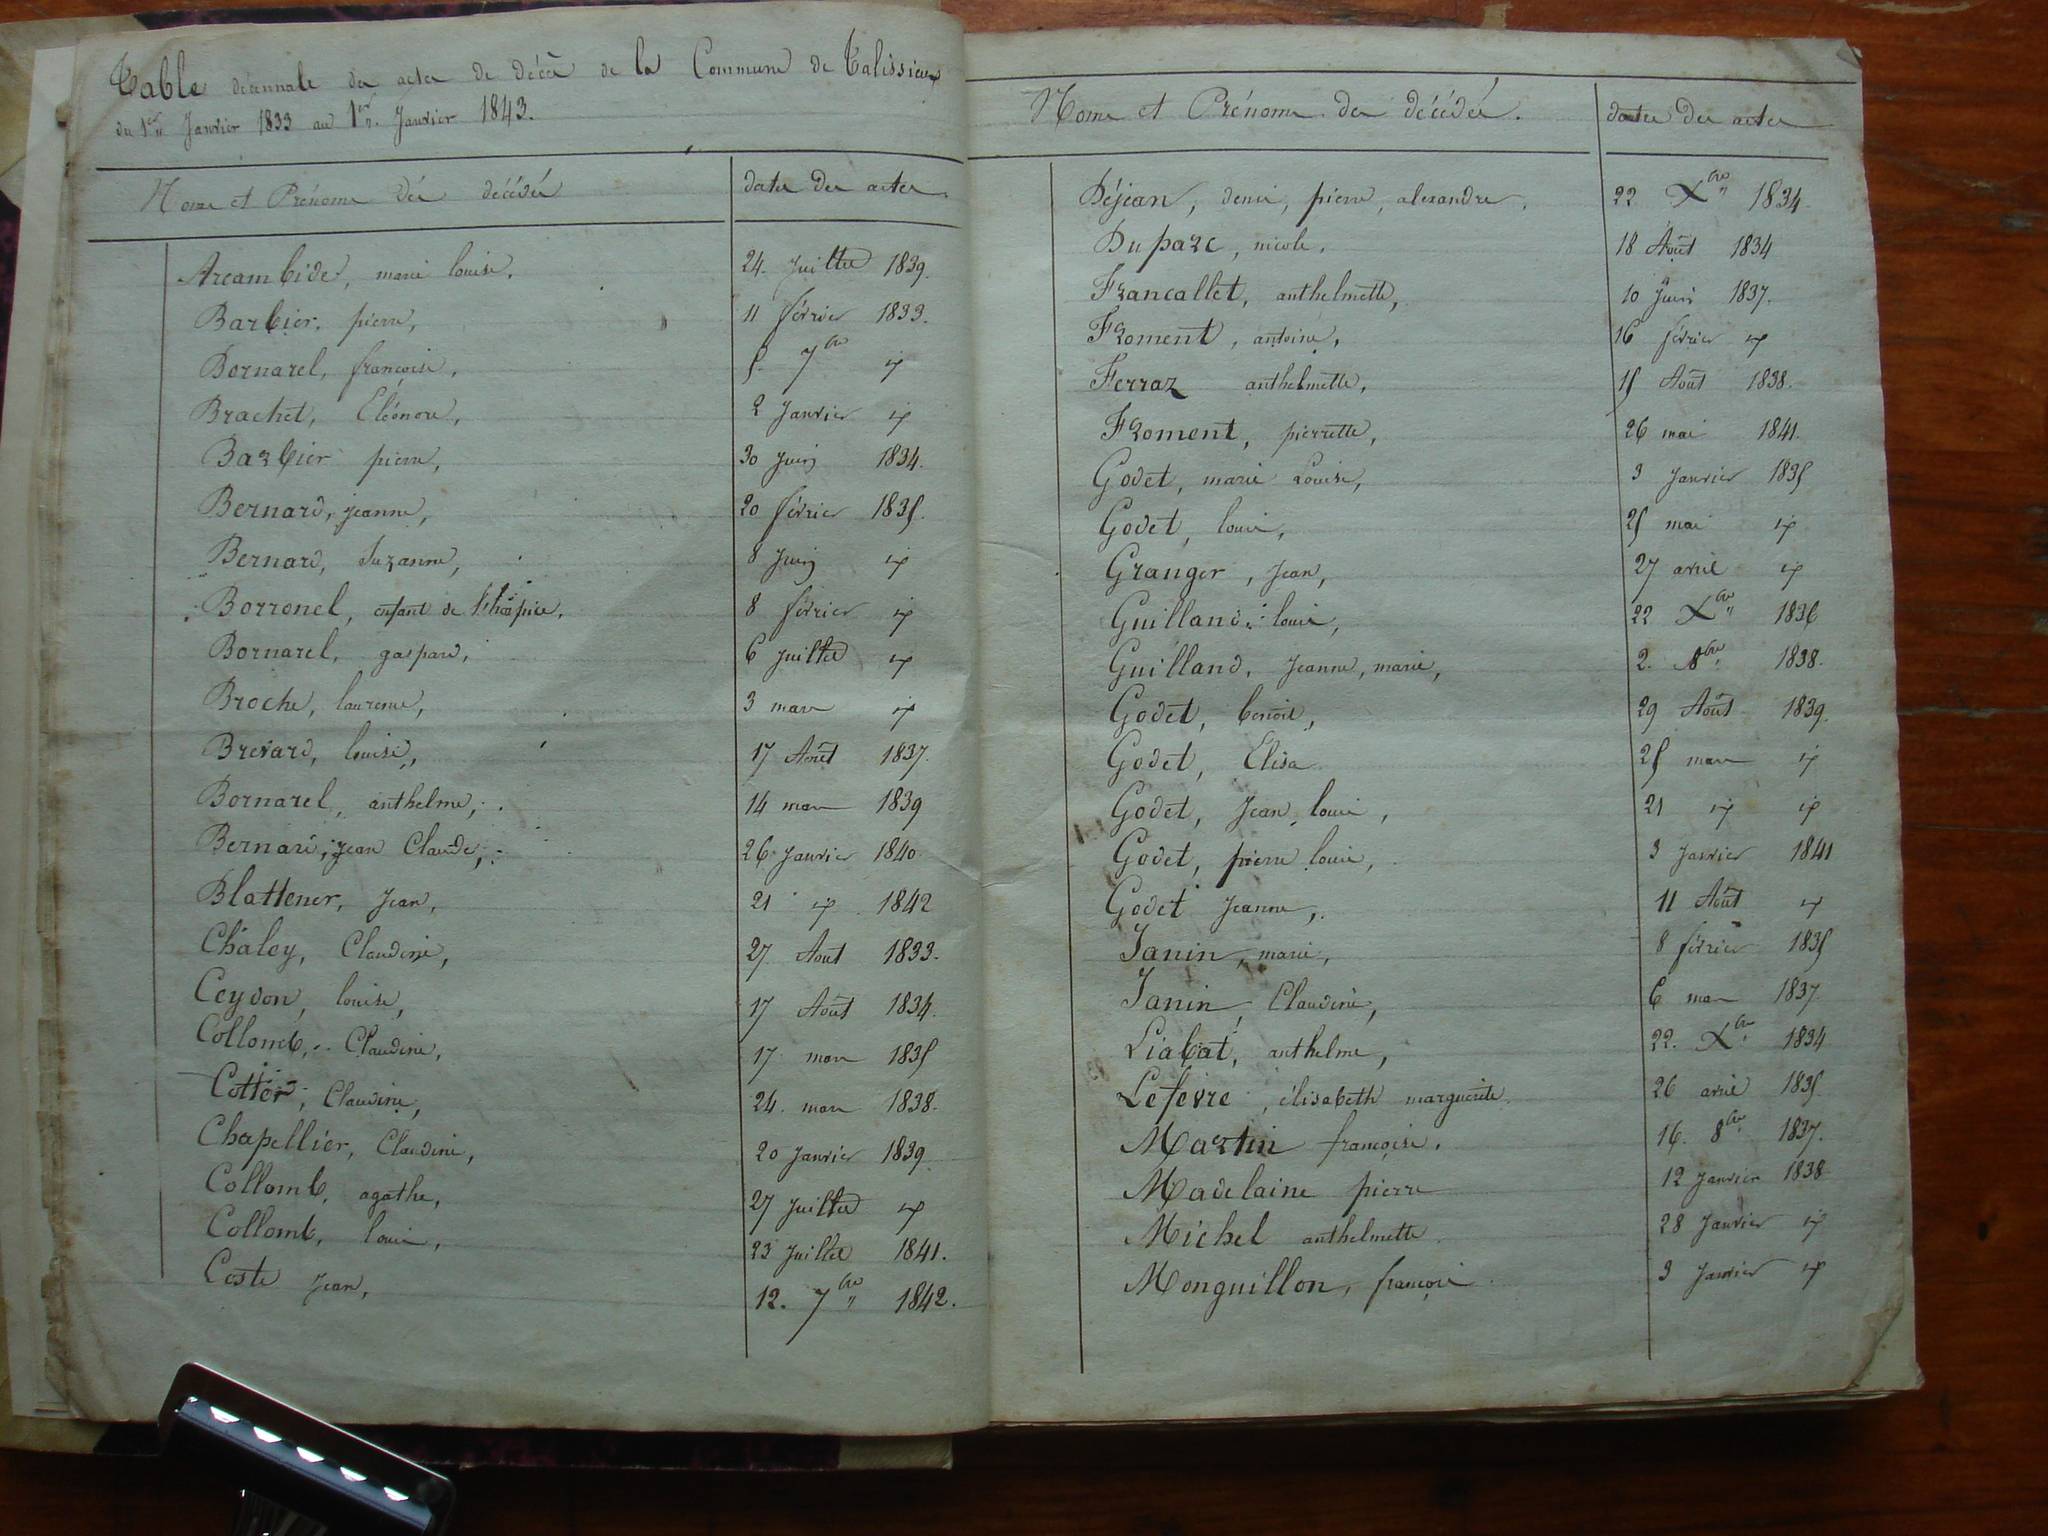 Table décennale des actes de décès de la Commune de Talissieux
du 1er Janvier 1833 au 1er Janvier 1843.
Noms et Prénoms des décédés dates des actes
Arcambide, marie louise, 24. Juillet 1839.
Barbier, pierre, 11 février 1833.
Bornarel, françoise, 5. 7bre id
Brachet, Eléonore, 2 Janvier id
Barbier pierre, 30 Juin 1834.
Bernard, jeanne, 20 février 1835.
Bernard, Suzanne, 8 Juin id
Borronel, enfant de l'hospice, 8 février id
Bornarel, gaspard, 6 Juillet id
Broche, laurence, 3 mars id
Brevard, louise, 17 Août 1837.
Bornarel, anthelme, 14 mars 1839
Bernard, jean Claude, 26 Janvier 1840.
Blattener, Jean, 21 id 1842
Chaley, Claudine, 27 Aout 1833.
Ceydon, louise, 17 Août 1834.
Collomb, Claudine, 17 mars 1835
Cotter, Claudine, 24. mars 1838.
Chapellier, Claudine, 20 Janvier 1839
Collomb, agathe, 27 Juillet id
Collomb, louis, 23 Juillet 1841.
Coste Jean, 12. 7bre 1842.
Noms et Prénoms des décédés. dates des actes
Déjean, denis, pierre, alexandre, 22 Xbre 1834.
Duparc, nicole, 18 Août 1834
Francallet, anthelmette, 10 Juin 1837.
Froment, antoine, 16 février id
Ferraz anthelmette, 15 Août 1838.
Froment, pierrette, 26 mai 1841.
Godet, marie Louise, 3 Janvier 1835
Godet, louis, 25 mai id
Granger, Jean, 27 avril id
Guilland, louis, 22 Xbre 1836
Guilland, Jeanne, marie, 2. 8bre 1838.
Godet, benoit, 29 Août 1839.
Godet, Elisa 25 mars id
Godet, Jean, louis, 21 id id
Godet, pierre louis, 3 Janvier 1841
Godet Jeanne, 11 Août id
Janin, marie, 8 février 1835
Janin, Claudine, 6 mars 1837
Liabat, anthelme, 22. Xbre 1834
Lefevre, élisabeth marguerite. 26 avril 1835.
Martin françoise. 16. 8bre 1837.
Madelaine pierre 12 Janvier 1838
Michel anthelmette. 28 Janvier id
Monguillon, françois 3 Janvier id